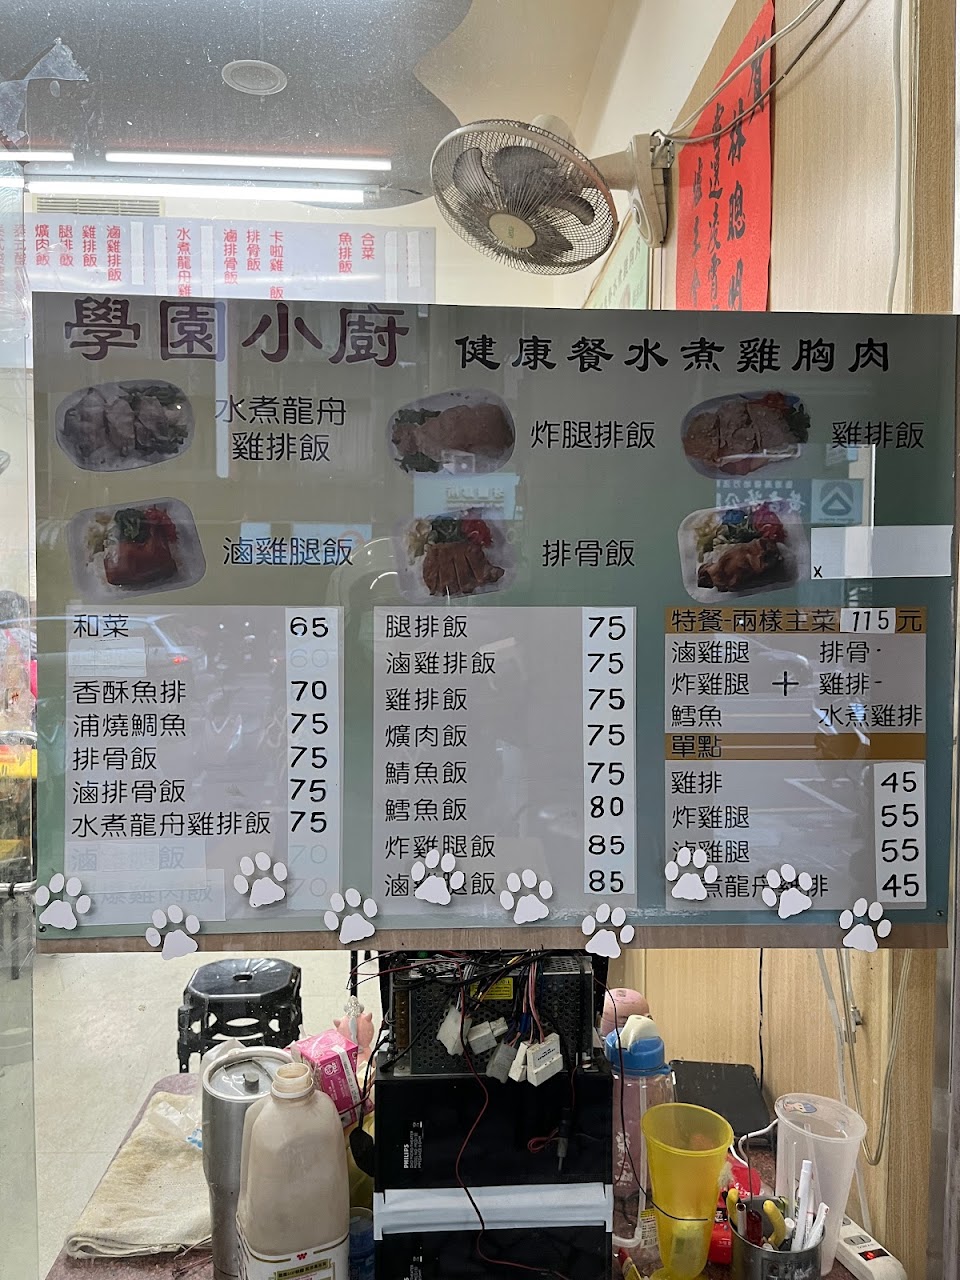 合菜
魚排飯
卡啦雞 飯
排骨飯
滷排骨飯
水煮龍舟雞
滷雞排飯
雞排飯
腿排飯
爌肉飯
學園小廚
健康餐水煮雞胸肉
水煮龍舟
雞排飯
炸腿排飯
雞排飯
滷雞腿飯
排骨飯
x
和菜 65
60
香酥魚排 70
浦燒鯛魚 75
排骨飯 75
滷排骨飯 75
水煮龍舟雞排飯 75
70
70
腿排飯 75
滷雞排飯 75
雞排飯 75
爌肉飯 75
鯖魚飯 75
鱈魚飯 80
炸雞腿飯 85
滷雞腿飯 85
特餐-兩樣主菜 115元
滷雞腿 排骨
炸雞腿 + 雞排
鱈魚 水煮雞排
單點
雞排 45
炸雞腿 55
滷雞腿 55
煮龍舟雞排 45
PHILIPS